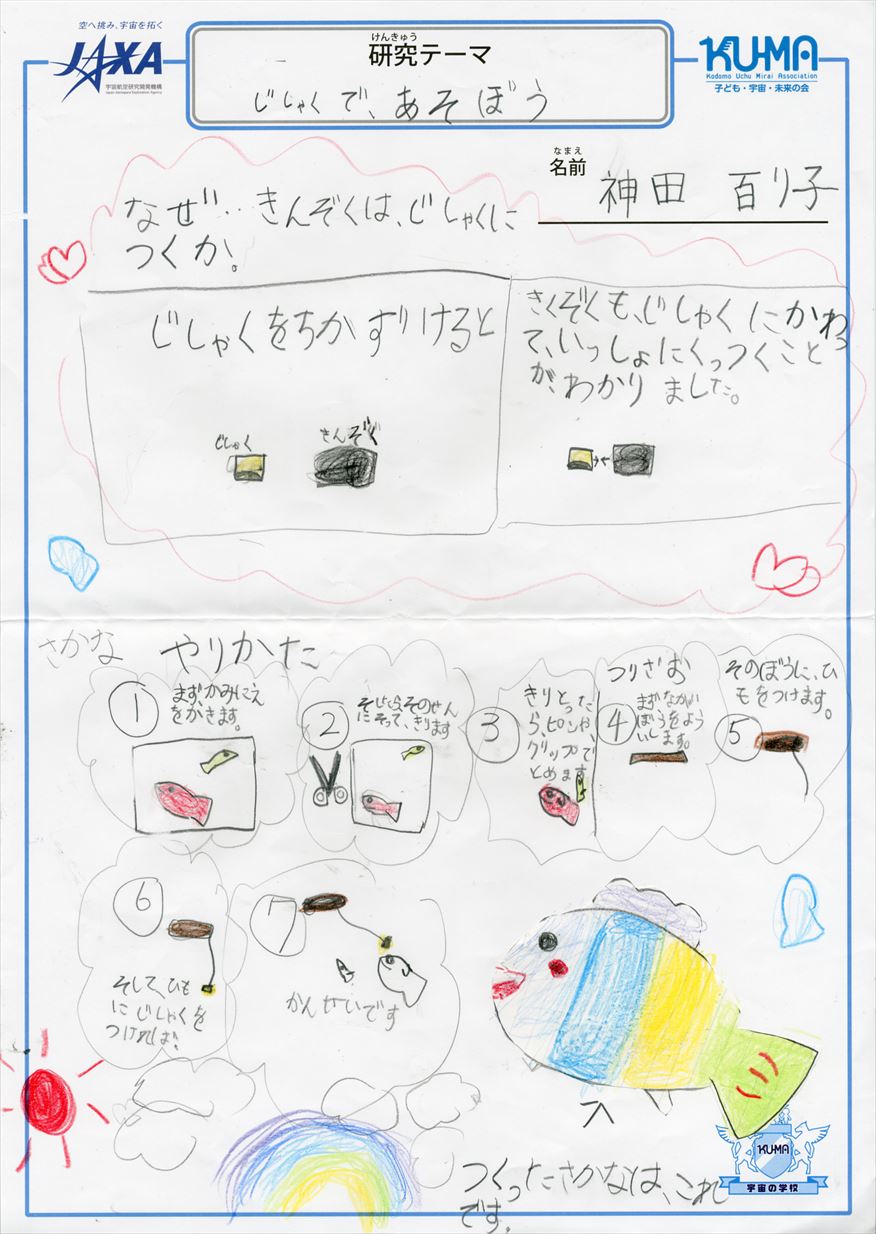 空へ挑み、宇宙を拓く
JAXA
宇宙航空研究開発機構
Japan Aerospace Exploration Agency
けんきゅう
研究テーマ
じしゃくで、あそぼう
KU-MA
Kodomo Uchu Mirai Association
子ども・宇宙・未来の会
なまえ
名前
神田 百り子
なぜ…きんぞくは、じしゃくに
つくか。
じしゃくをちかずけると
じしゃく
きんぞく
きくぞくも、じしゃくにかわっ
て、いっしょにくっつくこと
が、わかりました。
さかな
やりかた
①
まずかみにえ
をかきます。
②
そしたらそのせん
にそって、きります
3
きりとった
ら、ピンや、
クリップで
とめます
つりざお
④
まずながい
ぼうをよう
いします。
⑤
そのぼうに、ひ
もをつけます。
⑥
そして、ひも
にじしゃくを
つければ!
7
かんせいです
つくったさかなは、これ
です。
KU-MA
宇宙の学校